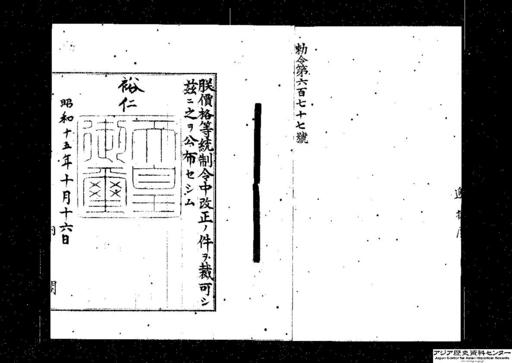 勅令第六百七十七號
朕價格等統制令中改正ノ件ヲ裁可シ
茲ニ之ヲ公布セシム
裕仁
天皇御璽
昭和十五年十月十六日
内閣
アジア歴史資料センター
Japan Center for Asian Historical Records